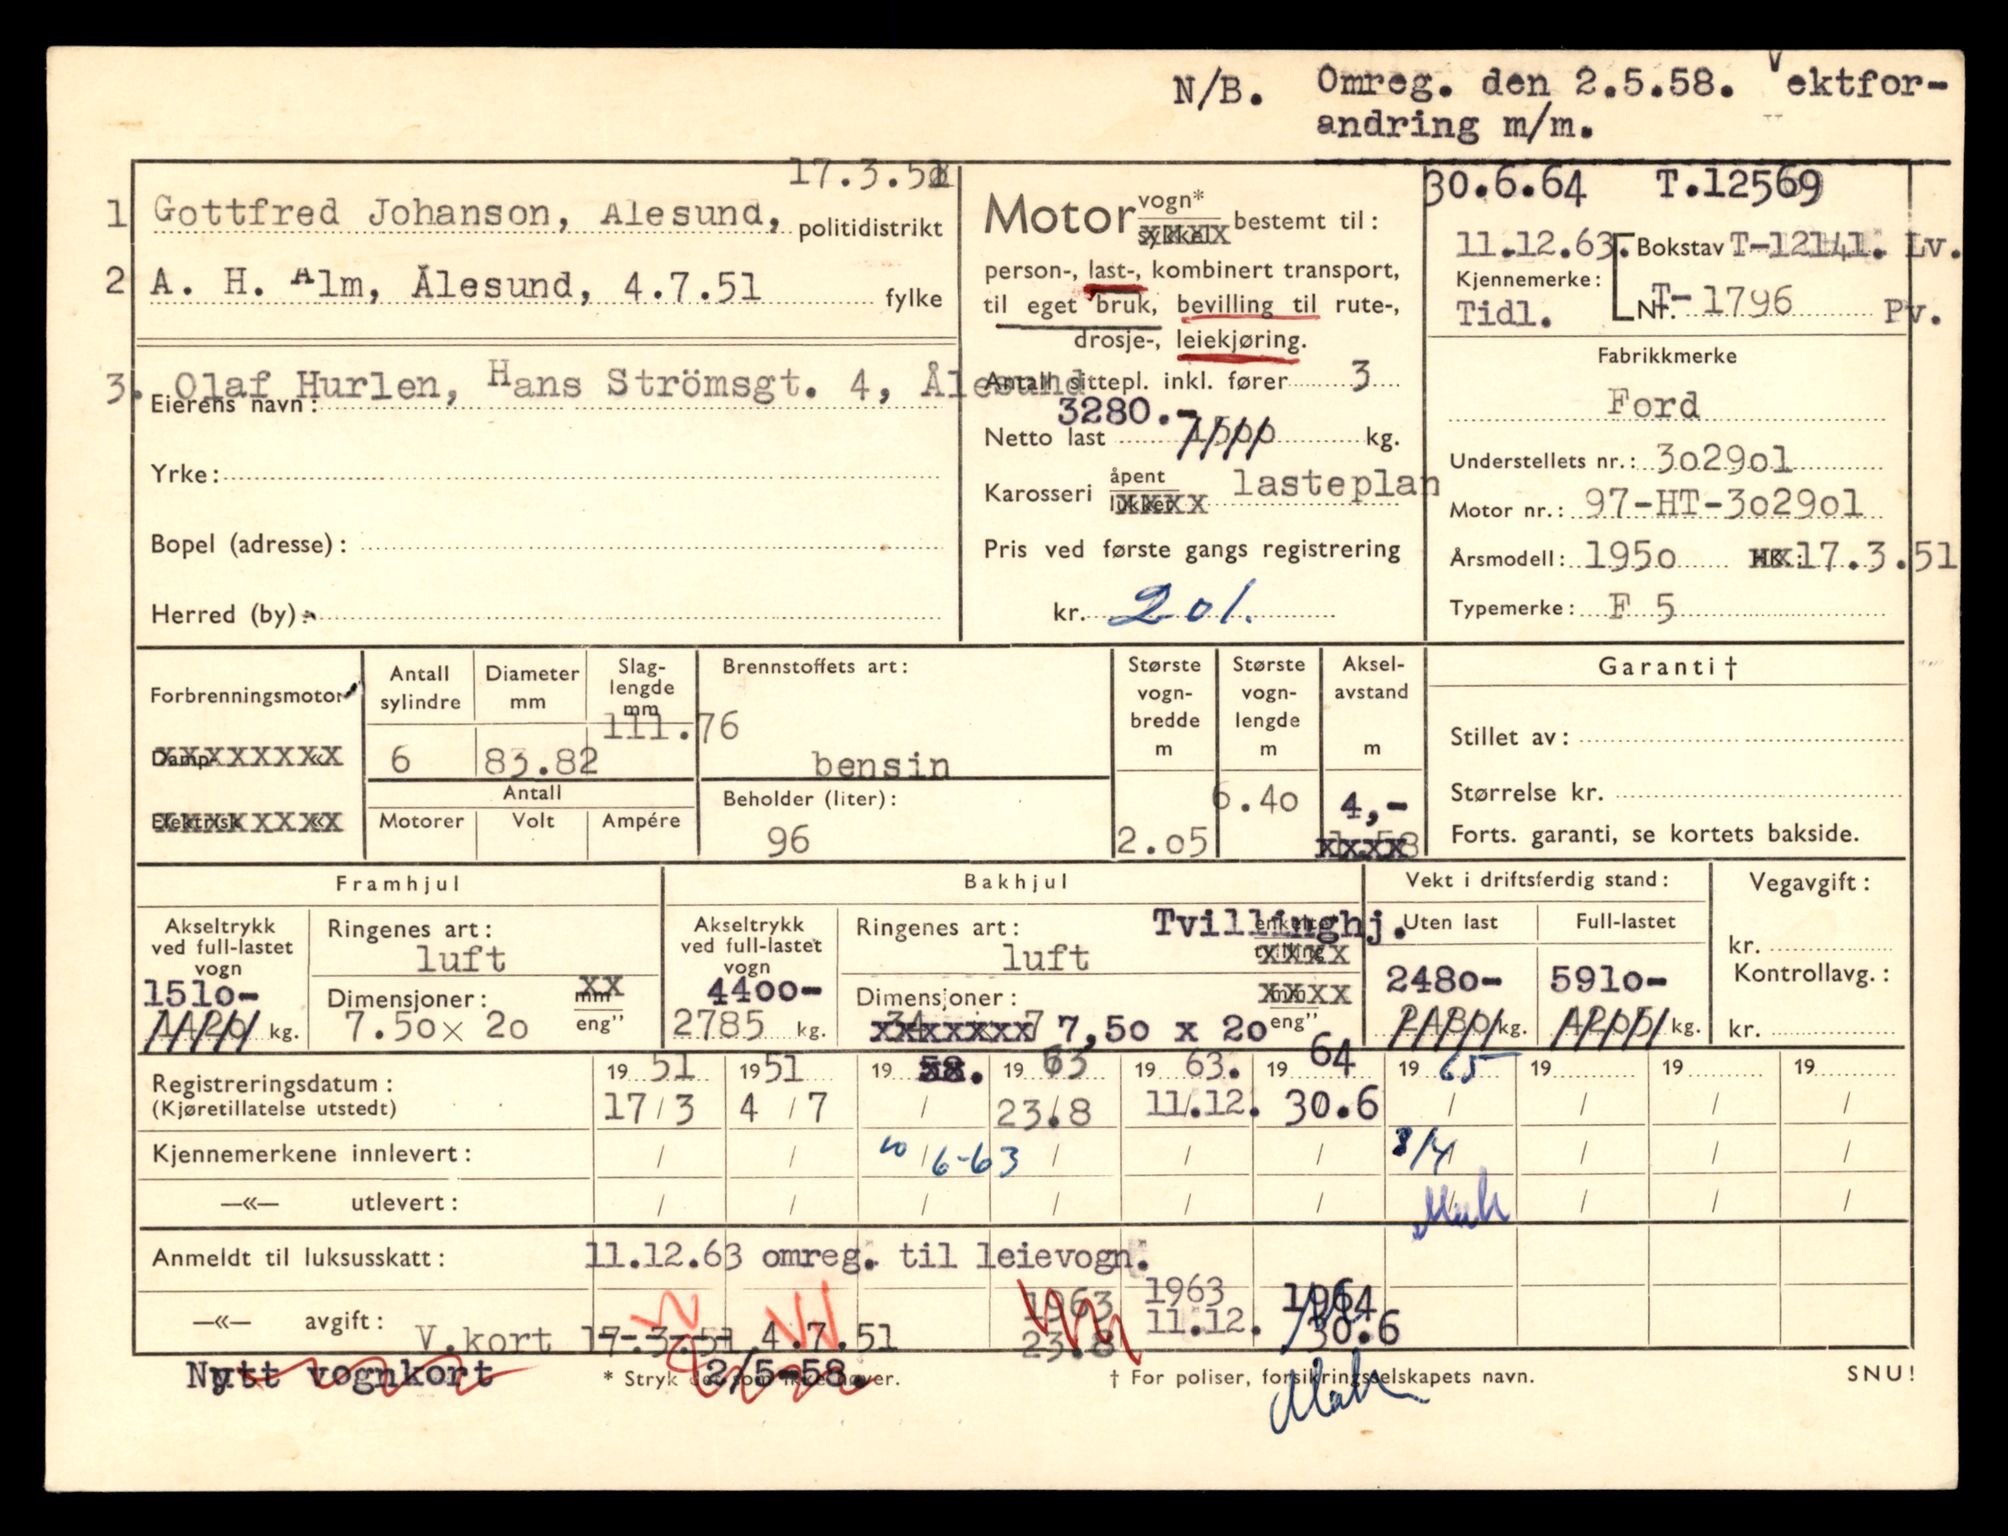 N/B. Omreg. den 2.5.58. Vektfor-
andring m/m.
17.3.51
1 Gottfred Johanson, Ålesund, politidistrikt
2 A. H. Alm, Ålesund, 4.7.51 fylke
3. Olaf Hurlen, Hans Strömsgt. 4, Ålesund
Eierens navn:
Yrke:
Bopel (adresse):
Herred (by):
Motor vogn* sykkel bestemt til:
person-, last-, kombinert transport,
til eget bruk, bevilling til rute-,
drosje-, leiekjøring.
Antall sittepl. inkl. fører 3
3280.-
Netto last 1500 kg.
Karosseri åpent lukket lasteplan
Pris ved første gangs registrering
kr. 201.
30.6.64 T.12569
11.12.63. Bokstav T-12141. Lv.
Kjennemerke:
Tidl. Nr. T-1796 Pv.
Fabrikkmerke
Ford
Understellets nr.: 302901
Motor nr.: 97-HT-302901
Årsmodell: 1950 HK: 17.3.51
Typemerke: F 5
Forbrenningsmotor
Damp- «
Elektrisk «
Antall sylindre
6
Diameter mm
83.82
Slag-
lengde
mm
111.76
Antall
Motorer Volt Ampére
Brennstoffets art:
bensin
Beholder (liter):
96
Største
vogn-
bredde
m
2.05
Største
vogn-
lengde
m
6.40
Aksel-
avstand
m
4,-
Garanti †
Stillet av:
Størrelse kr.
Forts. garanti, se kortets bakside.
Framhjul
Akseltrykk
ved full-lastet
vogn
1510-
1420 kg.
Ringenes art:
luft
Dimensjoner: mm
7.50 x 20 eng”
Bakhjul
Akseltrykk
ved full-lastet
vogn
4400-
2785 kg.
Ringenes art: Tvillinghj. enkelte
luft tvilling
Dimensjoner: mm
34 7 7,50 x 20 eng”
Vekt i driftsferdig stand:
Uten last Full-lastet
2480- 5910-
kg. 4205 kg.
Vegavgift:
kr.
Kontrollavg.:
kr.
Registreringsdatum: 19 51 19 51 19 58. 19 63 19 63. 19 64 19 65 19 19 19
(Kjøretillatelse utstedt) 17/3 4/7 / 23/8 11/12. 30.6 / / / /
Kjennemerkene innlevert: / / 10/6-63 / / / 8/4 / / /
—«— utlevert: / / / / / / / / / /
Anmeldt til luksusskatt: 11.12.63 omreg. til leievogn.
1963 1963 1964
—«— avgift: V.kort 17-3-51 4.7.51 23.8 11.12. 30.6
Nytt vognkort 2/5-58.
* Stryk det som ikke høver. † For poliser, forsikringsselskapets navn. SNU!